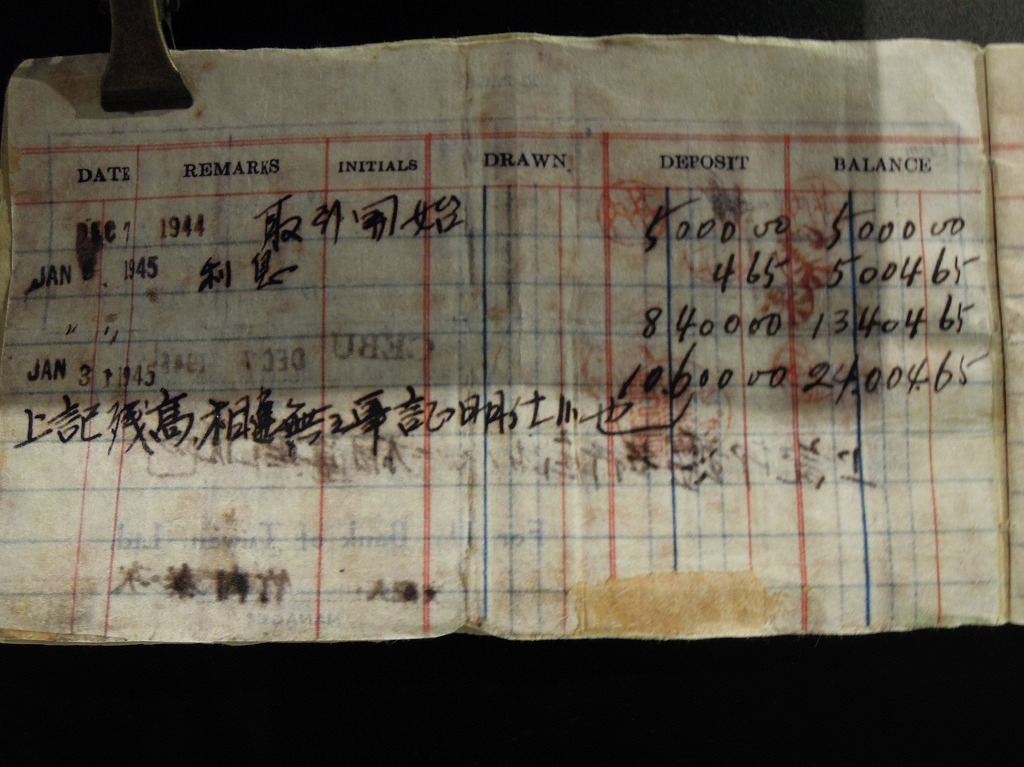 DATE REMARKS INITIALS DRAWN DEPOSIT BALANCE
DEC 7 1944 取引開始 5000 00 5000 00
JAN 1945 利息 4 65 5004 65
" " 8400 00 13404 65
JAN 31 1945 10.600 00 24.004.65
上記残高相違無之事証明仕候也
CEBU
DEC 7
For the Bank of Taiwan Ltd
MANAGER